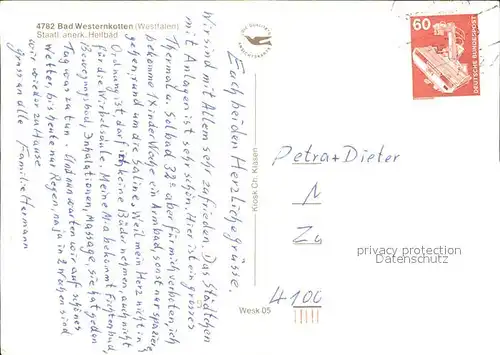 4782 Bad Westernkotten (Westfalen)
Staatl. anerk. Heilbad
Euch beiden Herzliche grüsse.
Wir sind mit Allem sehr zufrieden. Das Städtchen
mit Anlagen ist sehr schön. Hier ist ein grosses
Thermal u. Solbad 32° aber für mich verboten, ich
bekomme (Kinder Woche ein Armbad, sonst nur spazieren
gehen, rund um die Saline. Weil mein Herz nicht in
Ordnung ist, darf ich keine Bäder nehmen, auch nicht
für die Wirbelsäule. Meine M.a bekommt Fichtenbad,
Bewegungsbad, Inhalationen, Massage, sie hat jeden
Tag was zu tun. Und nun warten wir auf schönes
Wetter, bis heute nur Regen, na ja in 2 Wochen sind
wir wieder zu Hause
gruss an alle Familie Hermann
Kiosk Ch. Klasen
Wesk 05
60
DEUTSCHE BUNDESPOST
Petra + Dieter
N
Zu
4100
privacy protection
Datenschutz